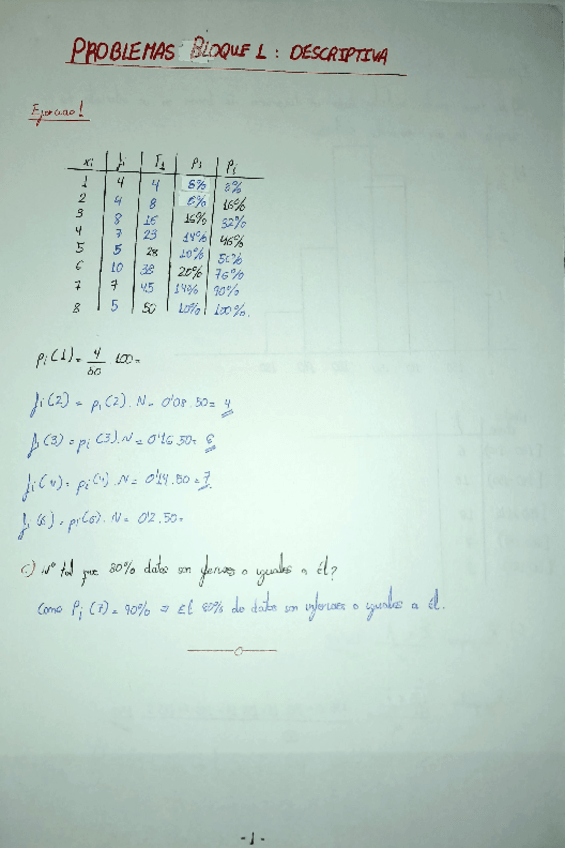 PROBLEMAS BLOQUE 1: DESCRIPTIVA
Ejercicio 1
xi fi Fi pi Pi
1 4 4 8% 8%
2 4 8 8% 16%
3 8 16 16% 32%
4 7 23 14% 46%
5 5 28 10% 56%
6 10 38 20% 76%
7 7 45 14% 90%
8 5 50 10% 100%.
pi(1) = 4/50 100 =
fi(2) = pi(2). N = 0'08.50 = 4
fi(3) = pi(3). N = 0'16.50 = 8
fi(4) = pi(4). N = 0'14.50 = 7
fi(6) = pi(6). N = 0'2.50 =
c) Nº tal que 80% datos son o iguales a él?
Como Pi(7) = 90% ⇒ El de datos son inferiores o iguales a él.
-1-